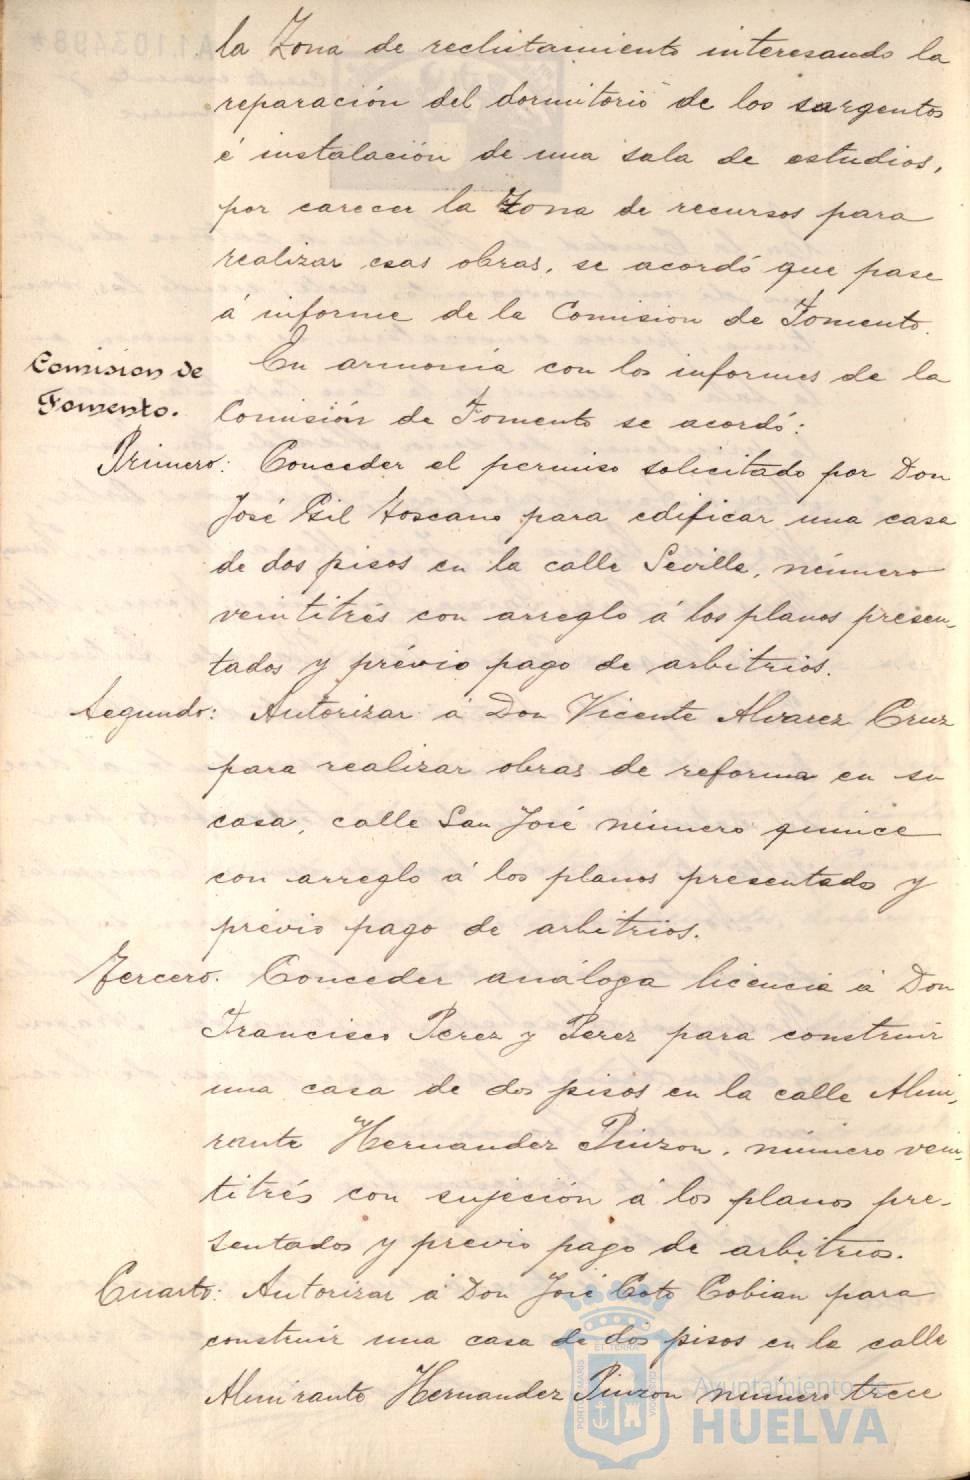 la Zona de reclutamiento interesando la
reparación del dormitorio de los sargentos
é instalación de una sala de estudios,
por carecer la Zona de recursos para
realizar esas obras, se acordó que pase
á informe de la Comision de Fomento.
Comision de
Fomento.
En armonia con los informes de la
Comisión de Fomento se acordó:
Primero: Conceder el permiso solicitado por Don
José Gil Toscano para edificar una casa
de dos pisos en la calle Sevilla, número
veintitrés con arreglo á los planos presen-
tados y prévio pago de arbitrios.
Segundo: Autorizar á Don Vicente Alvarez Cruz
para realizar obras de reforma en su
casa, calle San José número quince
con arreglo á los planos presentados y
prévio pago de arbitrios.
Tercero. Conceder análoga licencia á Don
Francisco Perez y Perez para construir
una casa de dos pisos en la calle Almi-
rante Hernandez Pinzon, número vein-
titrés con sujeción á los planos pre-
sentados y previo pago de arbitrios.
Cuarto: Autorizar á Don José Coto Cobian para
construir una casa de dos pisos en la calle
Almirante Hernandez Pinzon número trece
Ayuntamiento de
HUELVA